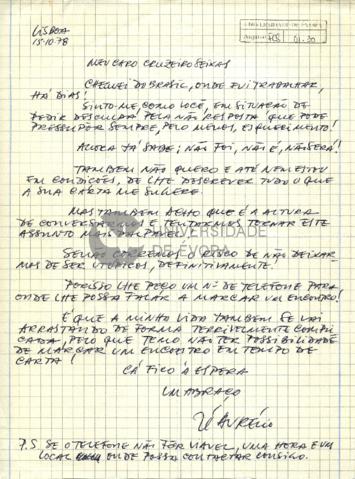 LISBOA
15.10.78
MEU CARO CRUZEIRO SEIXAS
CHEGUEI DO BRASIL, ONDE FUI TRABALHAR,
HÁ DIAS!
SINTO-ME, COMO VOCÊ, EM SITUAÇÃO DE
PEDIR DESCULPA PELA NÃO RESPOSTA QUE PODE
PRESSUPÔR SEMPRE, PELO MENOS, ESQUECIMENTO!
AGORA JÁ SABE; NÃO FOI, NÃO É, NÃO SERÁ!
TAMBEM NÃO QUERO E ATÉ NEM ESTOU
EM CONDIÇÕES, DE LHE DESCREVER TUDO O QUE
A SUA CARTA ME SUGERE.
MAS TAMBEM ACHO QUE É A ALTURA
DE CONVERSARMOS E TENTARMOS TORNAR ESTE
ASSUNTO MAIS PALPÁVEL.
SENÃO CORREMOS O RISCO DE NÃO DEIXAR
MOS DE SER UTÓPICOS, DEFINITIVAMENTE!
POR ISSO LHE PEÇO UM Nº DE TELEFONE PARA
ONDE LHE POSSA FALAR A MARCAR UM ENCONTRO!
É QUE A MINHA VIDA TAMBEM SE VAI
ARRASTANDO DE FORMA TERRIVELMENTE COMPLI
CADA, PELO QUE TEMO NÃO TER POSSIBILIDADE
DE MARCAR UM ENCONTRO EM TEMPO DE
CARTA!
CÁ FICO À ESPERA
UM ABRAÇO
ZÉ AURÉLIO
P.S. SE O TELEFONE NÃO FÔR VIAVEL, UMA HORA E UM
LOCAL ONDE POSSA CONTACTAR CONSIGO.
UNIVERSIDADE
DE ÉVORA